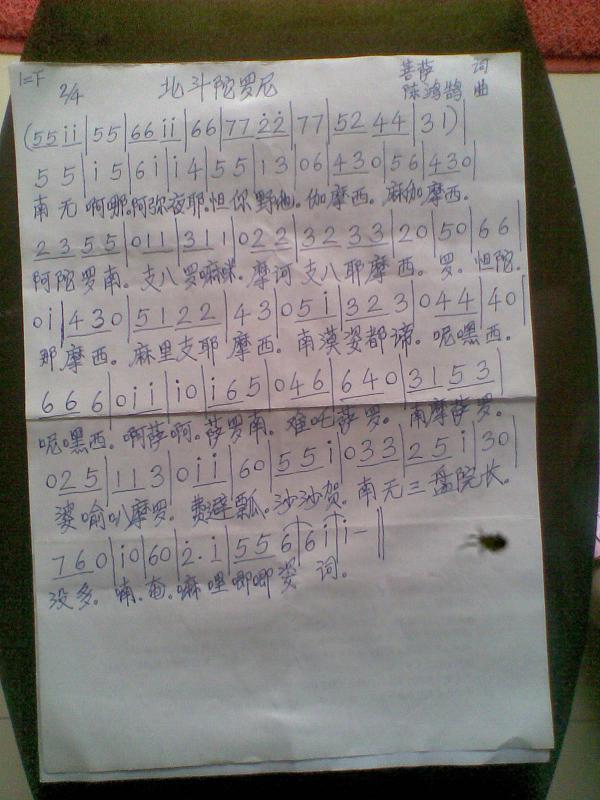 1=F 2/4 北斗陀罗尼 菩萨 词
陈鸿鹄 曲
(55i̇i̇|55|66i̇i̇|66|772̇2̇|77|5244|31)|
55|i̇5|6i̇|i̇4|55|13|06|430|56|430|
南无啊哪.阿弥夜耶.怛你野他.伽摩西.麻伽摩西.
2355|011|311|022|3233|20|50|66|
阿陀罗南.支八罗嘛咪.摩诃支八耶摩西.罗.怛陀.
0i̇|430|5122|43|05i̇|323|044|40|
那摩西.麻里支耶摩西.南漠婆都谛.呢嘿西.
666|0i̇i̇|i̇0|i̇65|046|640|3153|
呢嘿西.啊萨啊.萨罗南.难吒萨罗.南摩萨罗.
025|113|0i̇i̇|60|55i̇|033|25i̇|30|
婆喻叭摩罗.费避瓢.沙沙贺.南无三盘院长.
760|i̇0|60|2̇.i̇|556|6i̇|i̇-||
没多.喃.奄.嘛哩唧唧娑词.